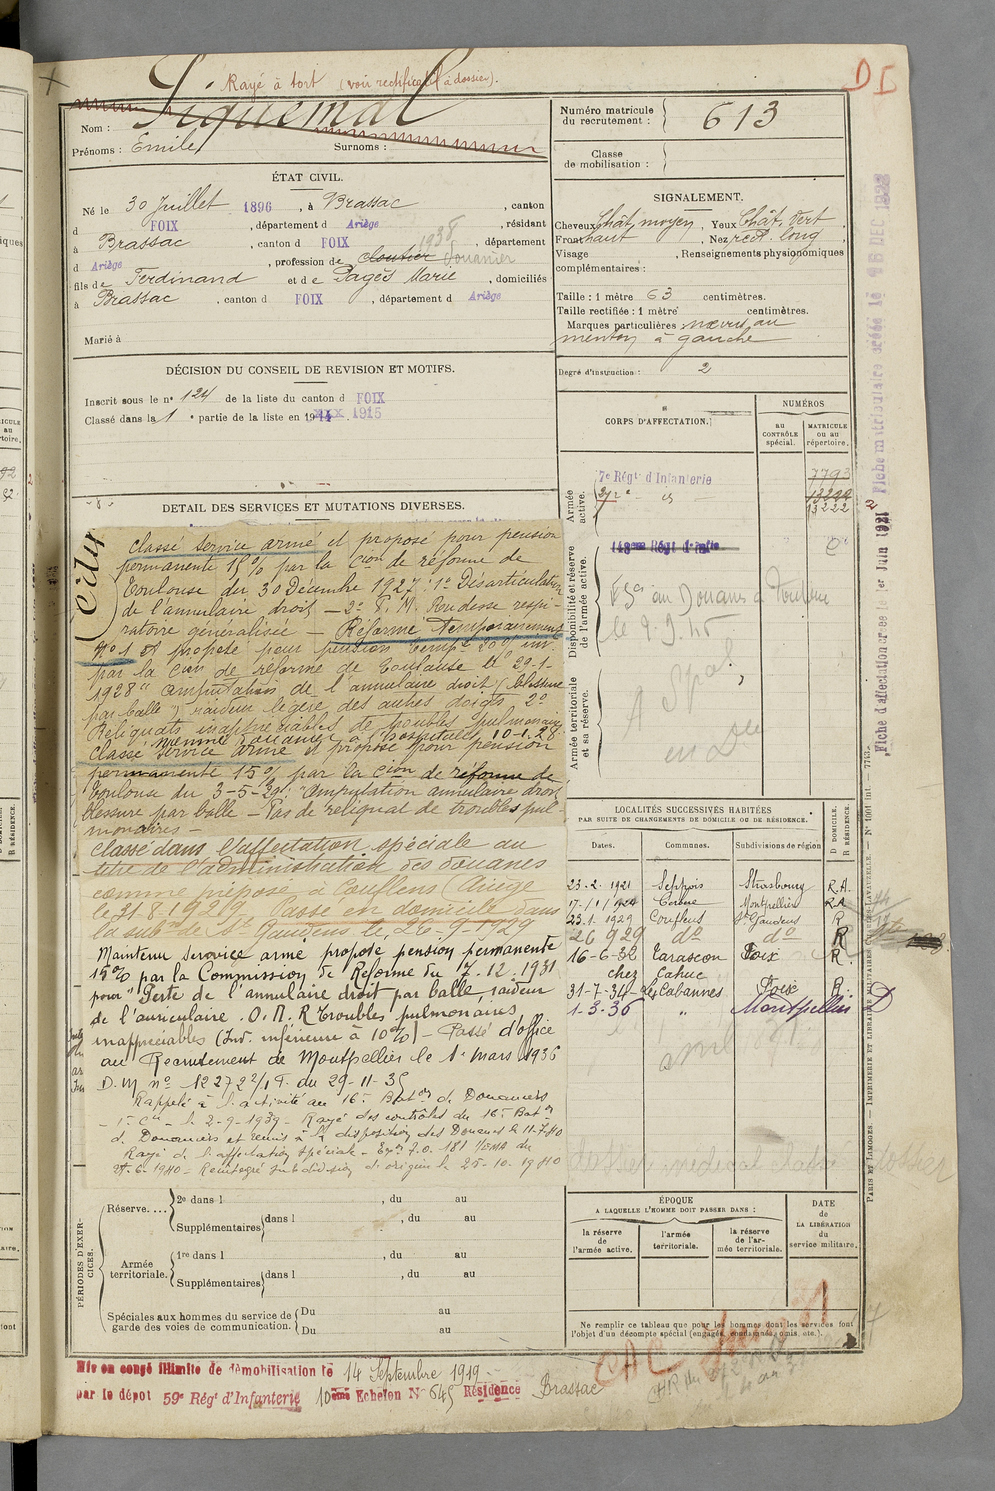 Rayé à tort (voir rectificatif à dossier).
D
Nom : Siguenal
Prénoms : Emile
Surnoms :
Numéro matricule du recrutement : 613
Classe de mobilisation :
ÉTAT CIVIL.
Né le 30 Juillet 1896, à Brassac, canton
d FOIX, département d Ariège, résidant
à Brassac, canton d FOIX, département
1938
d Ariège, profession de cloutier Douanier
fils de Ferdinand et de Pagès Marie, domiciliés
à Brassac, canton d FOIX, département d Ariège
Marié à
SIGNALEMENT.
Cheveux chât. moyen, Yeux Chât. vert
Front haut, Nez rect. long
Visage , Renseignements physionomiques
complémentaires :
Taille : 1 mètre 63 centimètres.
Taille rectifiée : 1 mètre centimètres.
Marques particulières : nœvus au
menton à gauche
Degré d'instruction : 2
DÉCISION DU CONSEIL DE REVISION ET MOTIFS.
Inscrit sous le n° 124 de la liste du canton d FOIX
Classé dans la 1e partie de la liste en 1915
CORPS D'AFFECTATION.
NUMÉROS
AU CONTRÔLE spécial.
MATRICULE ou au répertoire.
Armée active.
7e Régt d'Infanterie 7793
13222
13222
Disponibilité et réserve de l'armée active.
148ème Régt d'Infie
le 9.9.45
Armée territoriale et sa réserve.
A
DÉTAIL DES SERVICES ET MUTATIONS DIVERSES.
Classé service armé et proposé pour pension
permanente 15% par la Cion de réforme de
Toulouse du 30 Décembre 1927 : 1° Désarticulation
de l'annulaire droit — 2° P. M. Rudesse respi-
ratoire généralisée — Réformé temporairement
N° 1 et proposé pour pension temp. 20% inv.
par la Cion de réforme de Toulouse le 29-1-
1928 " amputation de l'annulaire droit (blessure
par balle) raideur légère des autres doigts 2°
Reliquats inappréciables de troubles pulmonaires
Nommé douanier à l'Hospitalet, 10-1-28
Classé service armé et proposé pour pension
permanente 15% par la Cion de réforme de
Toulouse du 3-5-29: "Amputation annulaire droit
blessure par balle — Pas de reliquat de troubles pul-
monaires —
Classé dans l'affectation spéciale au
titre de l'administration des douanes
comme préposé à Couflens (Ariège
le 21.8.1929 Passé en domicile dans
la subon de St Gaudens le, 26-9-1929
Maintenu service armé proposé pension permanente
15% par la Commission de Réforme du 7.12.1931
pour " Perte de l'annulaire droit par balle, raideur
de l'auriculaire. O.M.R troubles pulmonaires
inappréciables (Inv. inférieure à 10%) — Passé d'office
au Recrutement de Montpellier le 1er mars 1936
D.M n° 12272 2/1 T. du 29-11-35
Rappelé à l'activité au 16e Baton de Douaniers
1e Cie le 2-9-1939 — Rayé des contrôles du 16e Baton
de Douaniers et remis à la disposition des Douanes le 11-7-40
Rayé de l'affectation spéciale
Réintégré subdivision d'origine le 25-10-1940
LOCALITÉS SUCCESSIVES HABITÉES
PAR SUITE DE CHANGEMENTS DE DOMICILE OU DE RÉSIDENCE.
Dates. Communes. Subdivisions de région
D DOMICILE. R RÉSIDENCE.
23.2.1921 Seppois Strasbourg R.A.
17-1-1924 Cerbère Montpellier R.A
23.1.1929 Couflens St Gaudens R
26 9 29 do do R
16-6-32 Tarascon Foix R.
chez Cahuc
31-7-34 Les Cabannes Foix R.
1.3.36 " Montpellier D
dossier médical classé
PÉRIODES D'EXERCICES.
Réserve.... 2e dans l , du au
Supplémentaires dans l , du au
Armée territoriale. 1re dans l , du au
Supplémentaires dans l , du au
Spéciales aux hommes du service de garde des voies de communication. Du au
Du au
ÉPOQUE
A LAQUELLE L'HOMME DOIT PASSER DANS :
la réserve de l'armée active.
l'armée territoriale.
la réserve de l'armée territoriale.
DATE de LA LIBÉRATION du service militaire.
Ne remplir ce tableau que pour les hommes dont les services font
l'objet d'un décompte spécial (engagés, condamnés, omis, etc.).
CAC
Mis en congé illimité de démobilisation le 14 Septembre 1919
par le dépôt 59e Régt d'Infanterie 10ème Echelon N° 645 Résidence Brassac
Fiche d'affectation créée le 1er Juin 1921
Fiche matriculaire créée le
PARIS ET LIMOGES. — IMPRIMERIE ET LIBRAIRIE MILITAIRES CHARLES-LAVAUZELLE.